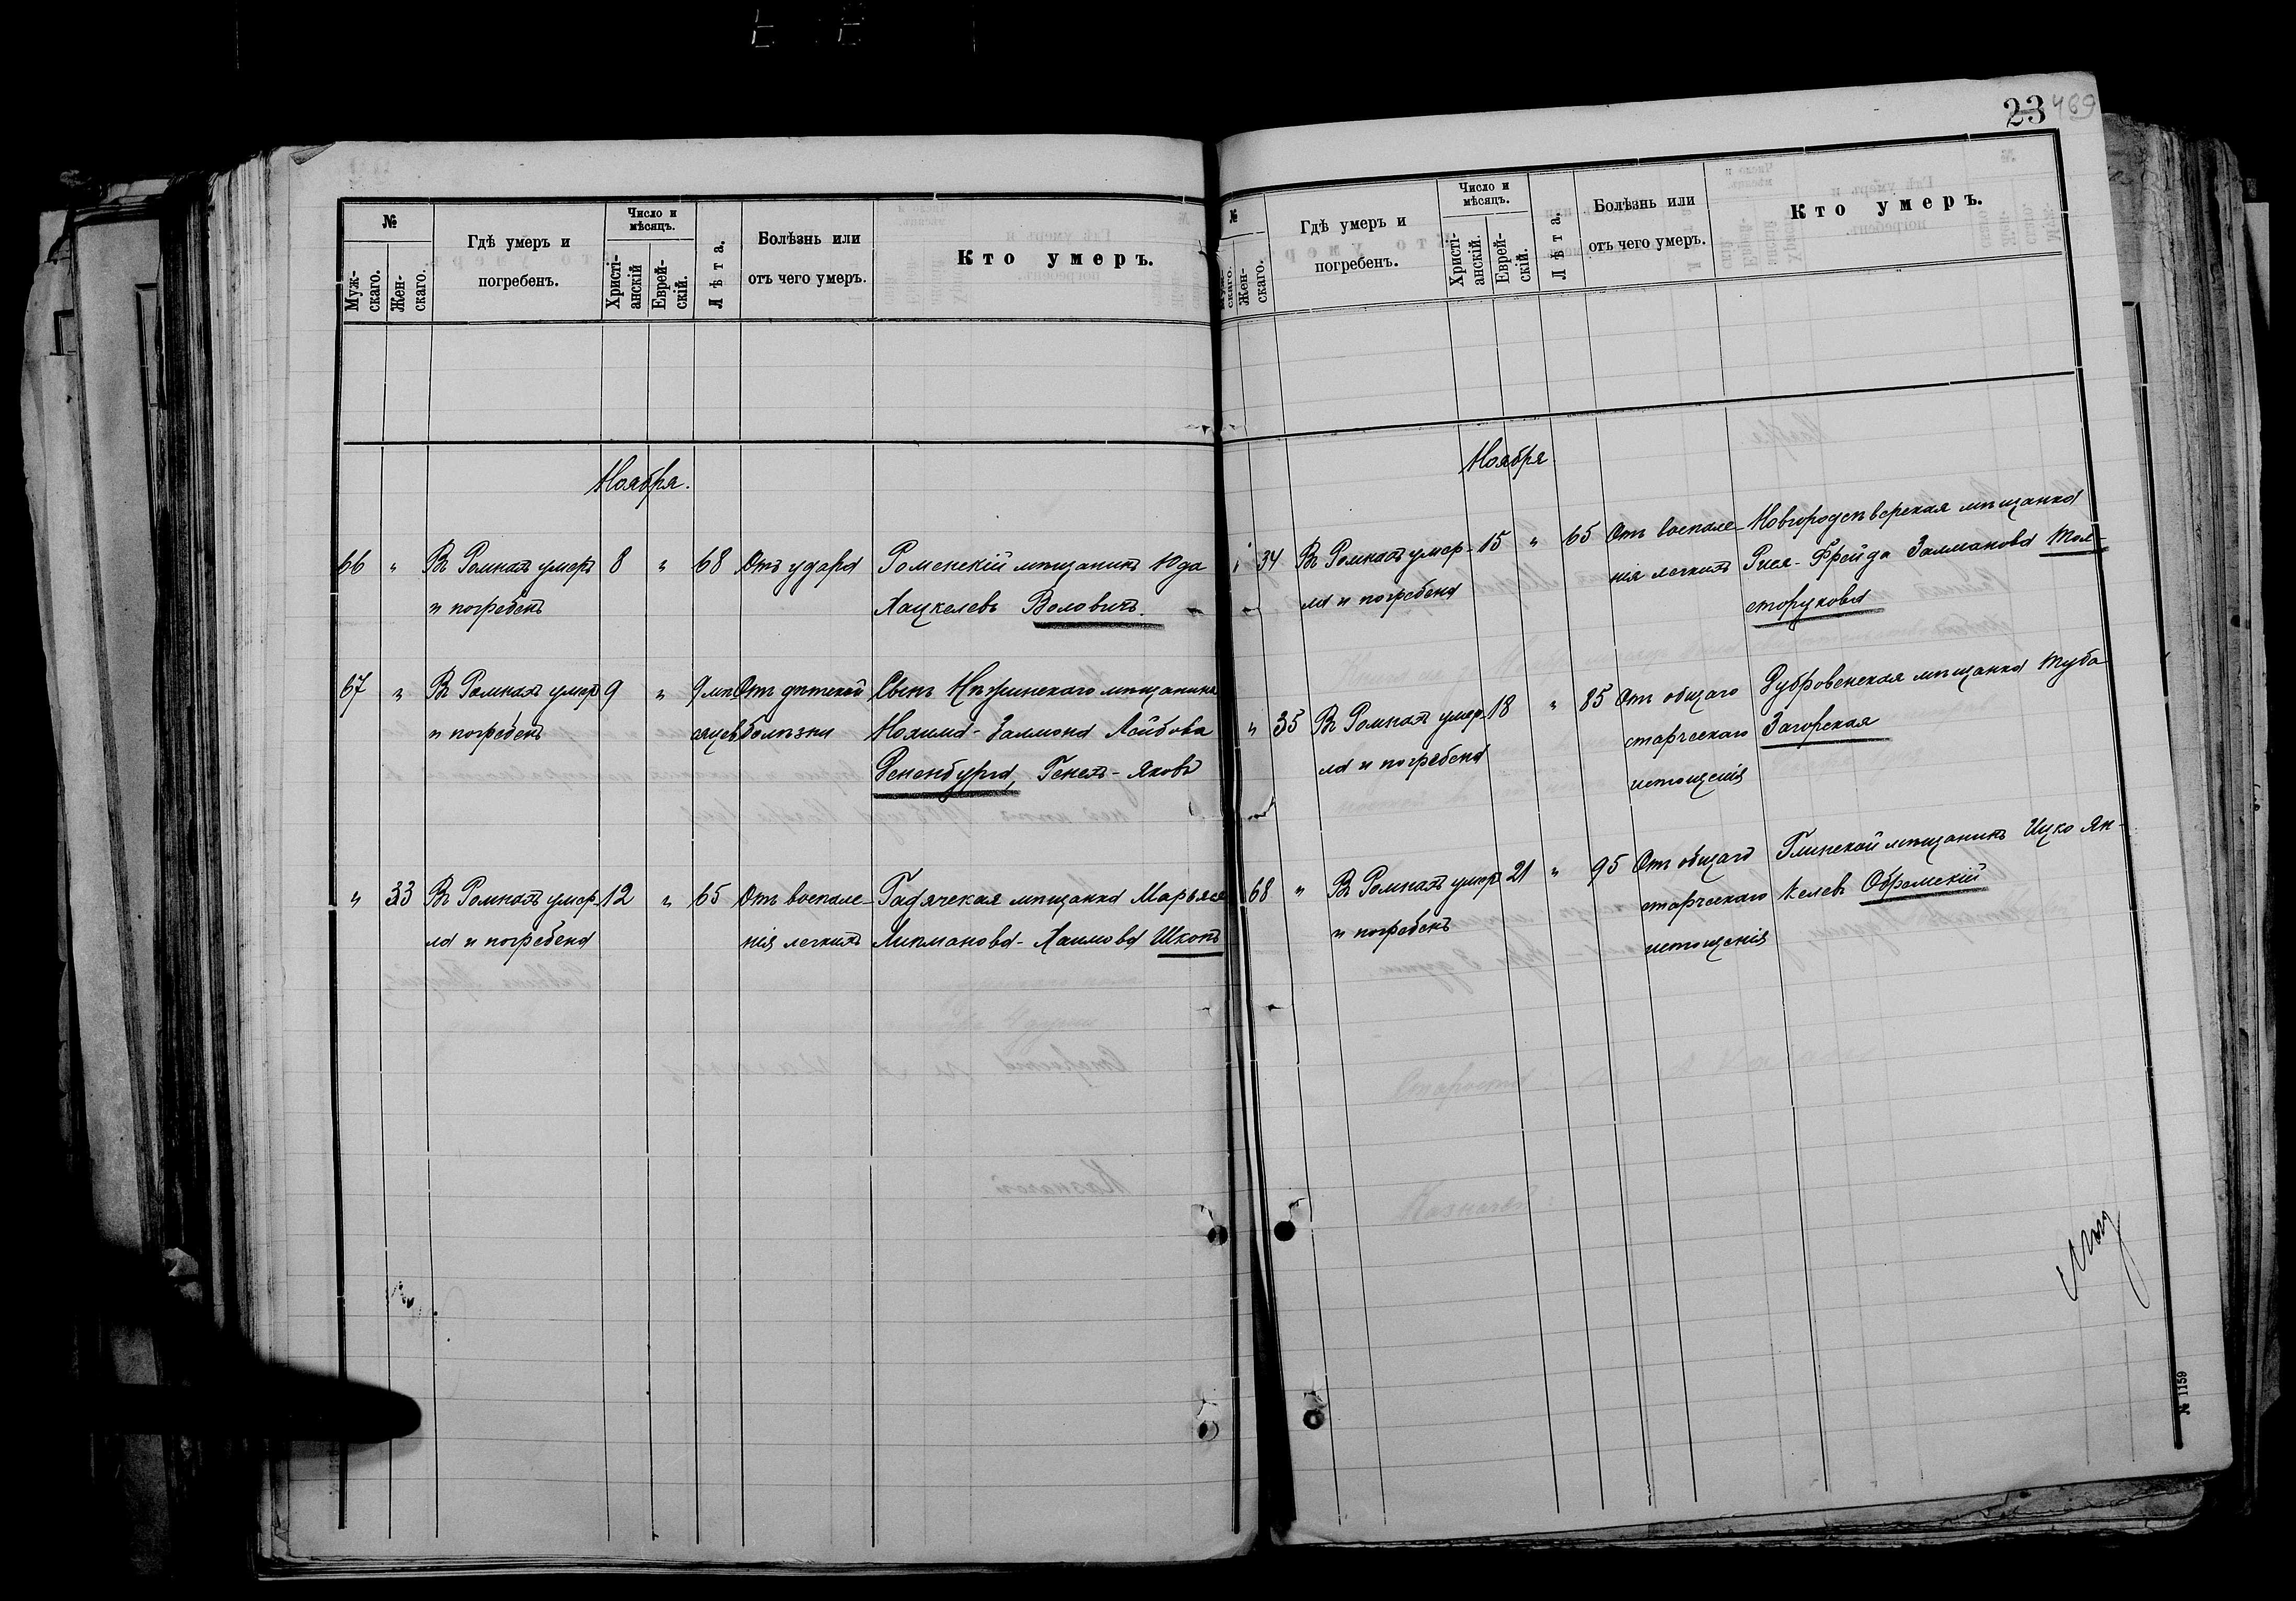 №
Муж-
скаго.
Жен-
скаго.
Гдѣ умеръ и
погребенъ.
Число и
мѣсяцъ.
Христі-
анскій
Еврей-
скій.
Лѣта.
Болѣзнь или
отъ чего умеръ.
Кто умеръ.
Ноября.
66 " Въ Ромнахъ умеръ 8 " 68 Отъ удара Роменскій мѣщанинъ Юда
и погребенъ Хацкелевъ Воловичъ.
67 " Въ Ромнахъ умеръ 9 " 9 мѣ Отъ дѣтской Сынъ Нѣжинскаго мѣщанина
и погребенъ сяцевъ болѣзни Нохима-Залмона Лейбова
Дененбурга, Генехъ-Яковъ
" 33 Въ Ромнахъ умер- 12 " 65 Отъ воспале- Гадячская мѣщанка Марьяся
ла и погребена нія легкихъ Липманова-Хаимова Шкопъ
23 489
№
Муж-
скаго.
Жен-
скаго.
Гдѣ умеръ и
погребенъ.
Число и
мѣсяцъ.
Христі-
анскій.
Еврей-
скій.
Лѣта.
Болѣзнь или
отъ чего умеръ.
Кто умеръ.
Ноября
34 Въ Ромнахъ умер- 15 " 65 Отъ воспале- Новгородсѣверская мѣщанка
ла и погребена нія легкихъ Рися-Фрейда Залманова Тол-
сторукова
" 35 Въ Ромнахъ умер- 18 " 85 Отъ общаго Дубровенская мѣщанка Туба
ла и погребена старческаго Загорская
истощенія
68 " Въ Ромнахъ умеръ 21 " 95 Отъ общаго Глинской мѣщанинъ Ицко Ян-
и погребенъ старческаго келевъ Обремскій
истощенія
№ 1159